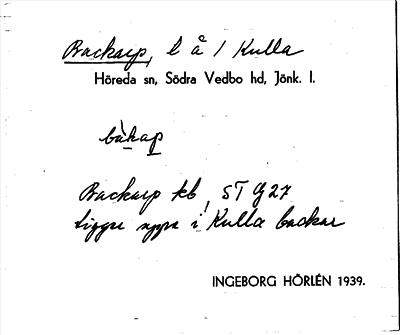 Backarp, l å 1 Kulla
Höreda sn, Södra Vedbo hd, Jönk. l.
bàkap
Backarp kb, ST G27
ligger uppe i Kulla backar
INGEBORG HÖRLÉN 1939.